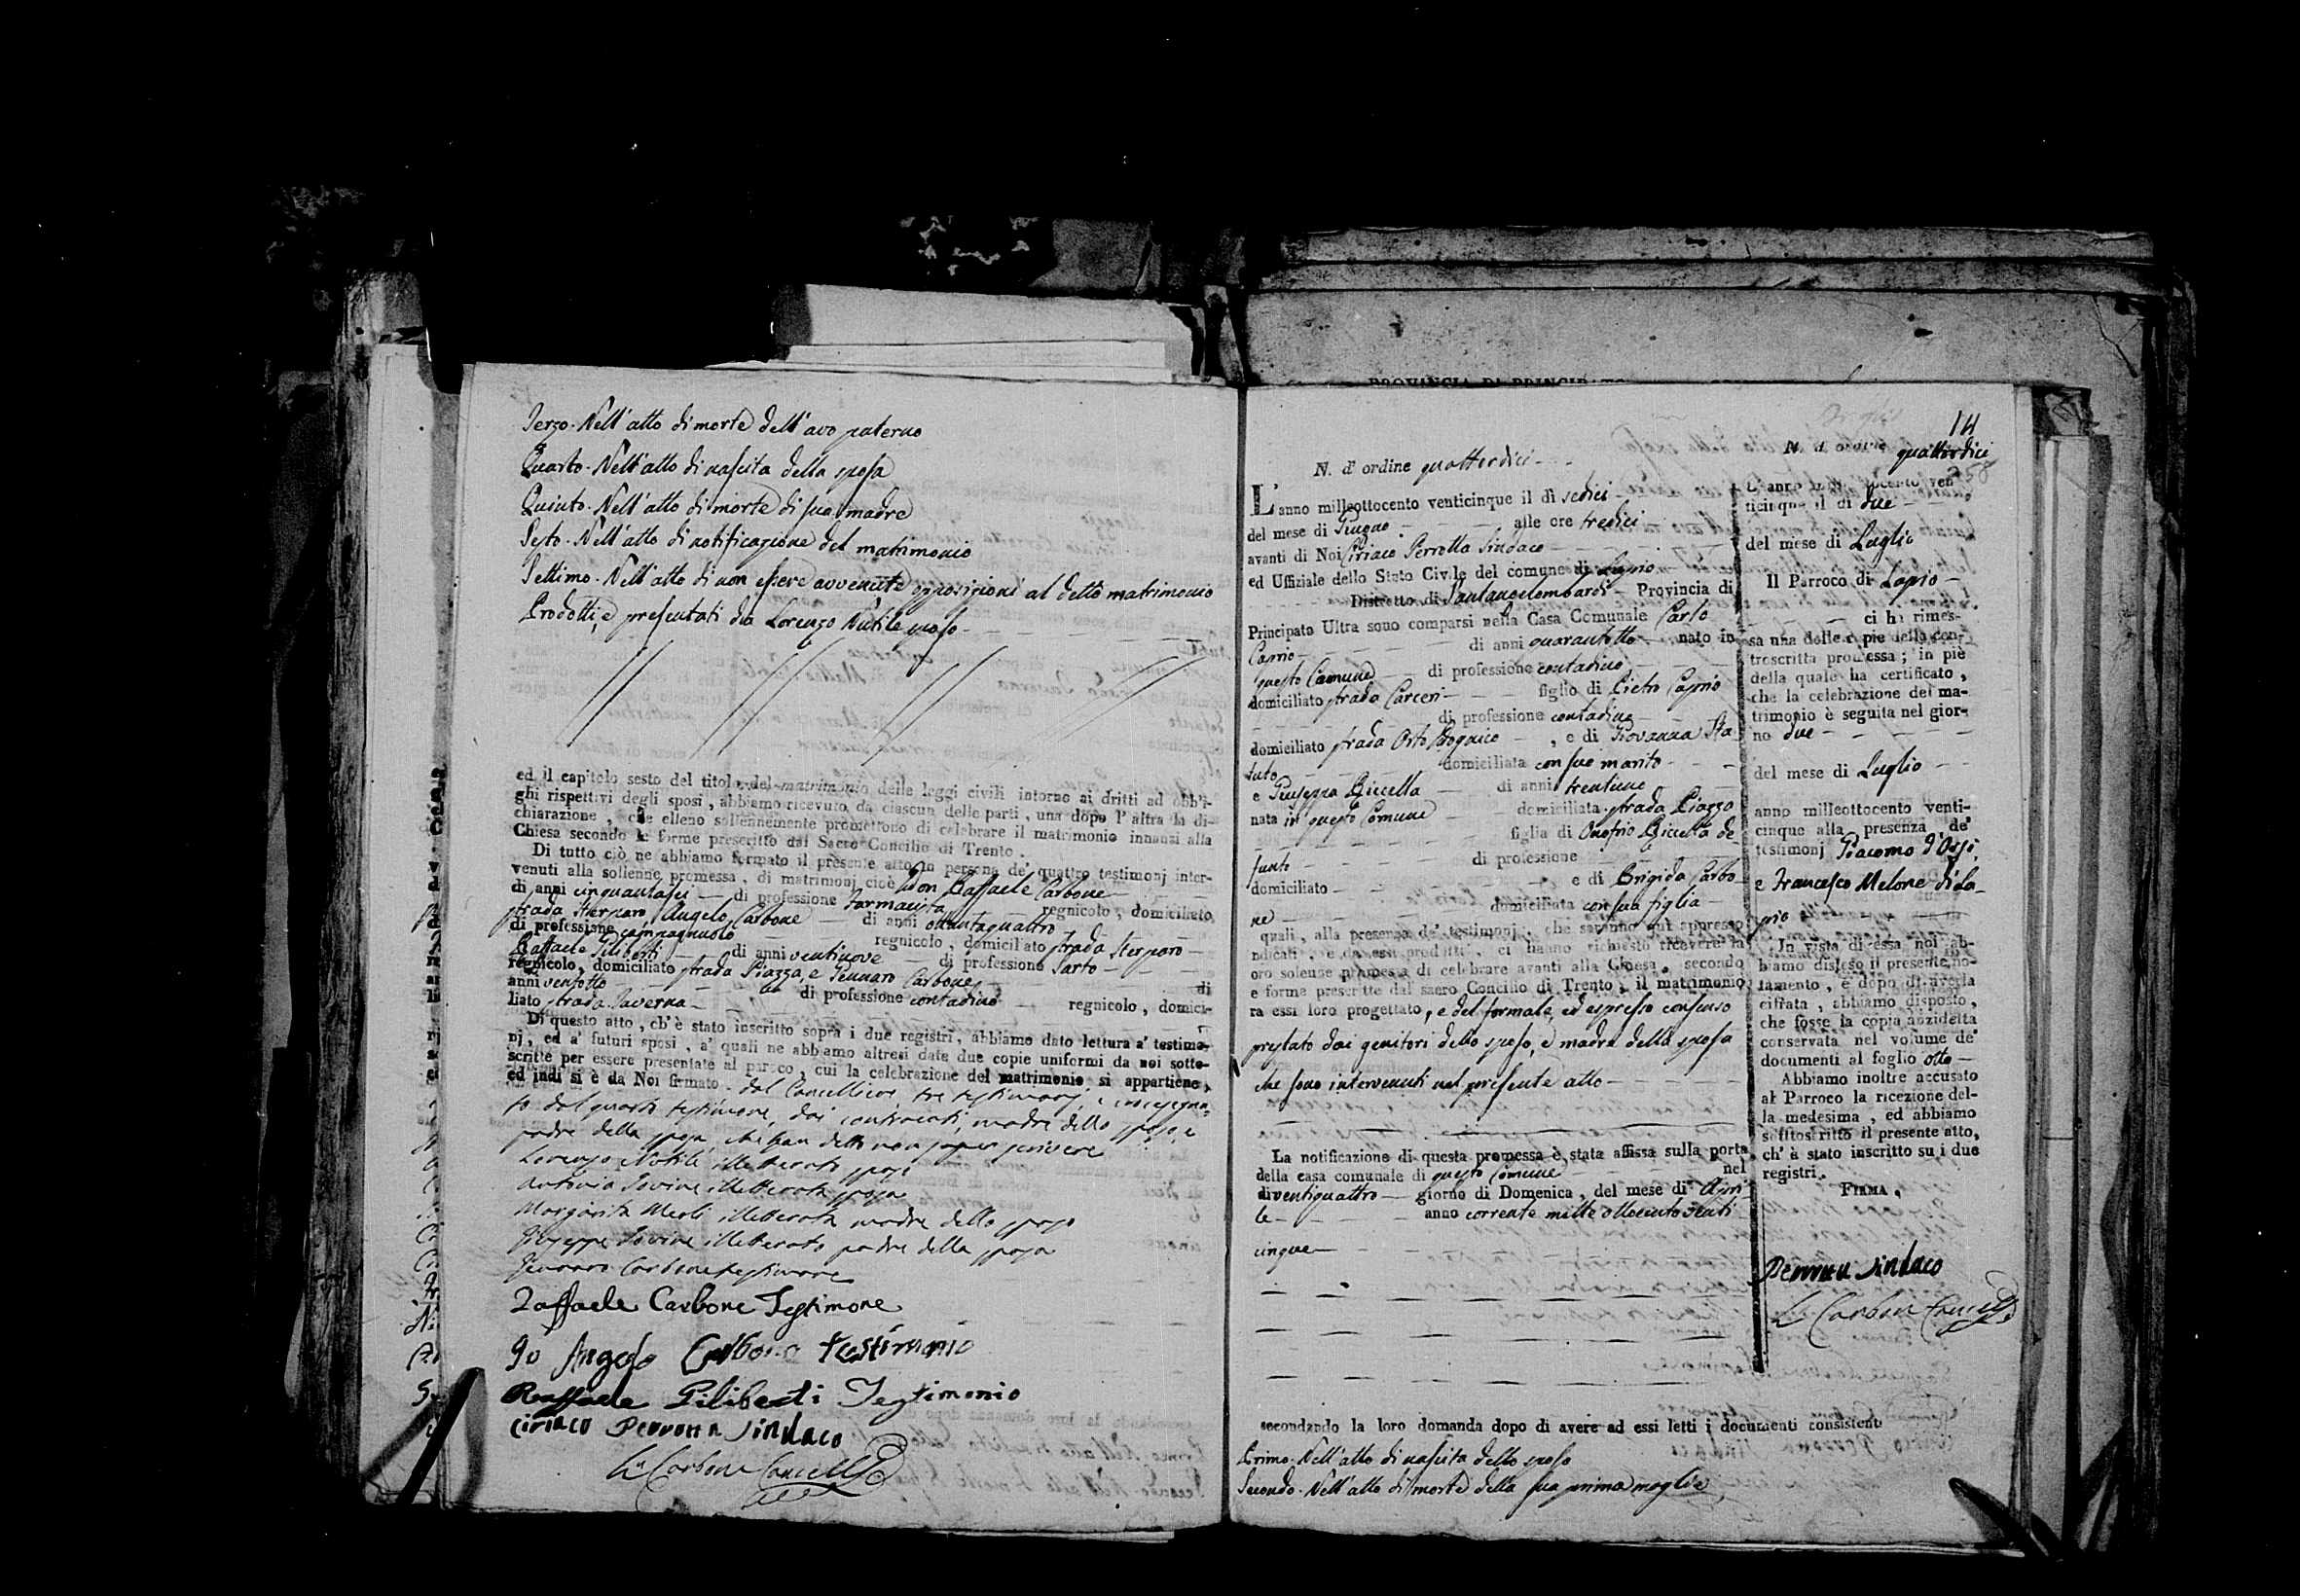 Terzo. Nell'atto di morte dell'avo paterno
Quarto. Nell'atto di nascita della sposa
Quinto. Nell'atto di morte di sua madre
Sesto. Nell'atto di notificazione del matrimonio
Settimo. Nell'atto di non essere avvenute opposizioni al detto matrimonio
Prodotti, e presentati da Lorenzo Nutile sposo
ed il capitolo sesto del titolo del matrimonio delle leggi civili intorno ai dritti ad obbli-
ghi rispettivi degli sposi, abbiamo ricevuto da ciascun delle parti, una dopo l'altra la di-
chiarazione, che elleno solennemente promettono di celebrare il matrimonio innanzi alla
Chiesa secondo le forme prescritto dal Sacro Concilio di Trento.
Di tutto ciò ne abbiamo formato il presente atto in persona de' quattro testimonj inter-
venuti alla sollenne promessa, di matrimonj cioè Don Raffaele Carbone
di anni cinquantasei di professione Farmacista regnicolo, domiciliato
strada Sterparo, Angelo Carbone di anni ottantaquattro
di professione campagnuolo regnicolo, domiciliato strada Sterparo
Raffaele Piliberti di anni ventinove di professione Sarto
regnicolo, domiciliato strada Piazza, e Gennaro Carbone di
anni ventotto di professione contadino regnicolo, domici-
liato strada Taverna
Di questo atto, ch'è stato inscritto sopra i due registri, abbiamo dato lettura a' testimo-
nj, ed a' futuri sposi, a' quali ne abbiamo altresì date due copie uniformi da noi sotto-
scritte per essere presentate al parroco, cui la celebrazione del matrimonio si appartiene,
ed indi si è da Noi firmato. dal Cancelliere, tre testimonj, e
to dal quarto testimone, dai contraenti, madre dello sposo, e
padre della sposa, che han detto non saper scrivere
Lorenzo Nutile illetterato sposo
Antonia Iovine illetterata sposa
Margarita Meoli illetterata madre dello sposo
Giuseppe Iovine illetterato padre della sposa
Gennaro Carbone testimone
Raffaele Carbone Testimone
Io Angelo Carbone testimonio
Raffaele Piliberti Testimonio
Ciriaco Perrotta Sindaco
Carbone Cancell
14
N. d'ordine quattordici
L'anno milleottocento venticinque il dì sedici
del mese di Giugno alle ore tredici
avanti di Noi Ciriaco Perrotta Sindaco
ed Uffiziale dello Stato Civile del comune di Lapio
Distretto di Santangelolombardi Provincia di
Principato Ultra sono comparsi nella Casa Comunale Carlo
Caprio di anni quarantotto nato in
questo Comune di professione contadino
domiciliato strada Carceri figlio di Pietro Caprio
di professione contadino
domiciliato strada Orto, e di Giovanna Sta
tuto domiciliata con suo marito
e Giuseppa Riccella di anni trentuno
nata in questo Comune domiciliata strada Piazza
figlia di Onofrio Riccella de
funto di professione
domiciliato e di Brigida Carbo
ne domiciliata con sua figlia
quali, alla presenza de' testimonj, che saranno qui appresso
ndicati, e da essi prodotti, ci hanno richiesto ricevere la
oro solenne promessa di celebrare avanti alla Chiesa, secondo
e forme prescritte dal sacro Concilio di Trento, il matrimonio
ra essi loro progettato, e del formale, ed espresso consenso
prestato dai genitori dello sposo, e madre della sposa
che sono intervenuti nel presente atto
La notificazione di questa promessa è stata affissa sulla porta
della casa comunale di questo Comune nel
dì ventiquattro giorno di Domenica, del mese di Apri
le anno corrente mille ottocento venti
cinque
secondando la loro domanda dopo di avere ad essi letti i documenti consistenti
Primo. Nell'atto di nascita dello sposo
Secondo. Nell'atto di morte della sua prima moglie
N. d'ordine quattordici
258
L'anno milleottocento ven
ticinque il dì due
del mese di Luglio
Il Parroco di Lapio
ci ha rimes-
sa una delle copie della con-
troscritta promessa; in piè
della quale ha certificato,
che la celebrazione del ma-
trimonio è seguita nel gior-
no due
del mese di Luglio
anno milleottocento venti-
cinque alla presenza de'
testimonj Giacomo d'Orsi,
e Francesco Melone di La-
pio
In vista di essa noi ab-
biamo disteso il presente no-
tamento, e dopo di averla
cifrata, abbiamo disposto,
che fosse la copia anzidetta
conservata nel volume de'
documenti al foglio otto
Abbiamo inoltre accusato
al Parroco la ricezione del-
la medesima, ed abbiamo
sottoscritto il presente atto,
ch'è stato inscritto su i due
registri.
FIRMA,
Perrotta Sindaco
Carbone Cancell